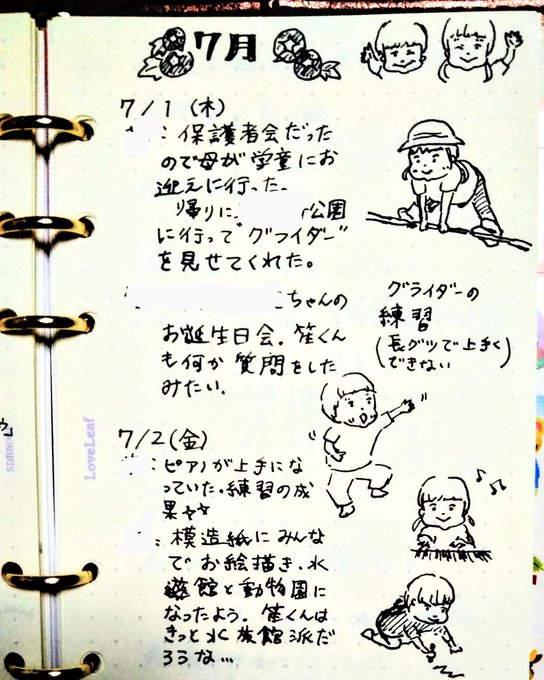 7月
7/1 (木)
：保護者会だった
ので母が学童にお
迎えに行った。
帰りに 公園
に行って"グライダー"
を見せてくれた。
ちゃんの
お誕生日会。笙くん
も何か質問をした
みたい。
グライダーの
練習
(長グツで上手く
できない)
7/2(金)
：ピアノが上手にな
っていた。練習の成
果
：模造紙にみんな
でお絵描き。水
館と動物園に
なったよう。笙くんは
きっと水族館派だ
ろうな…
LoveLeaf